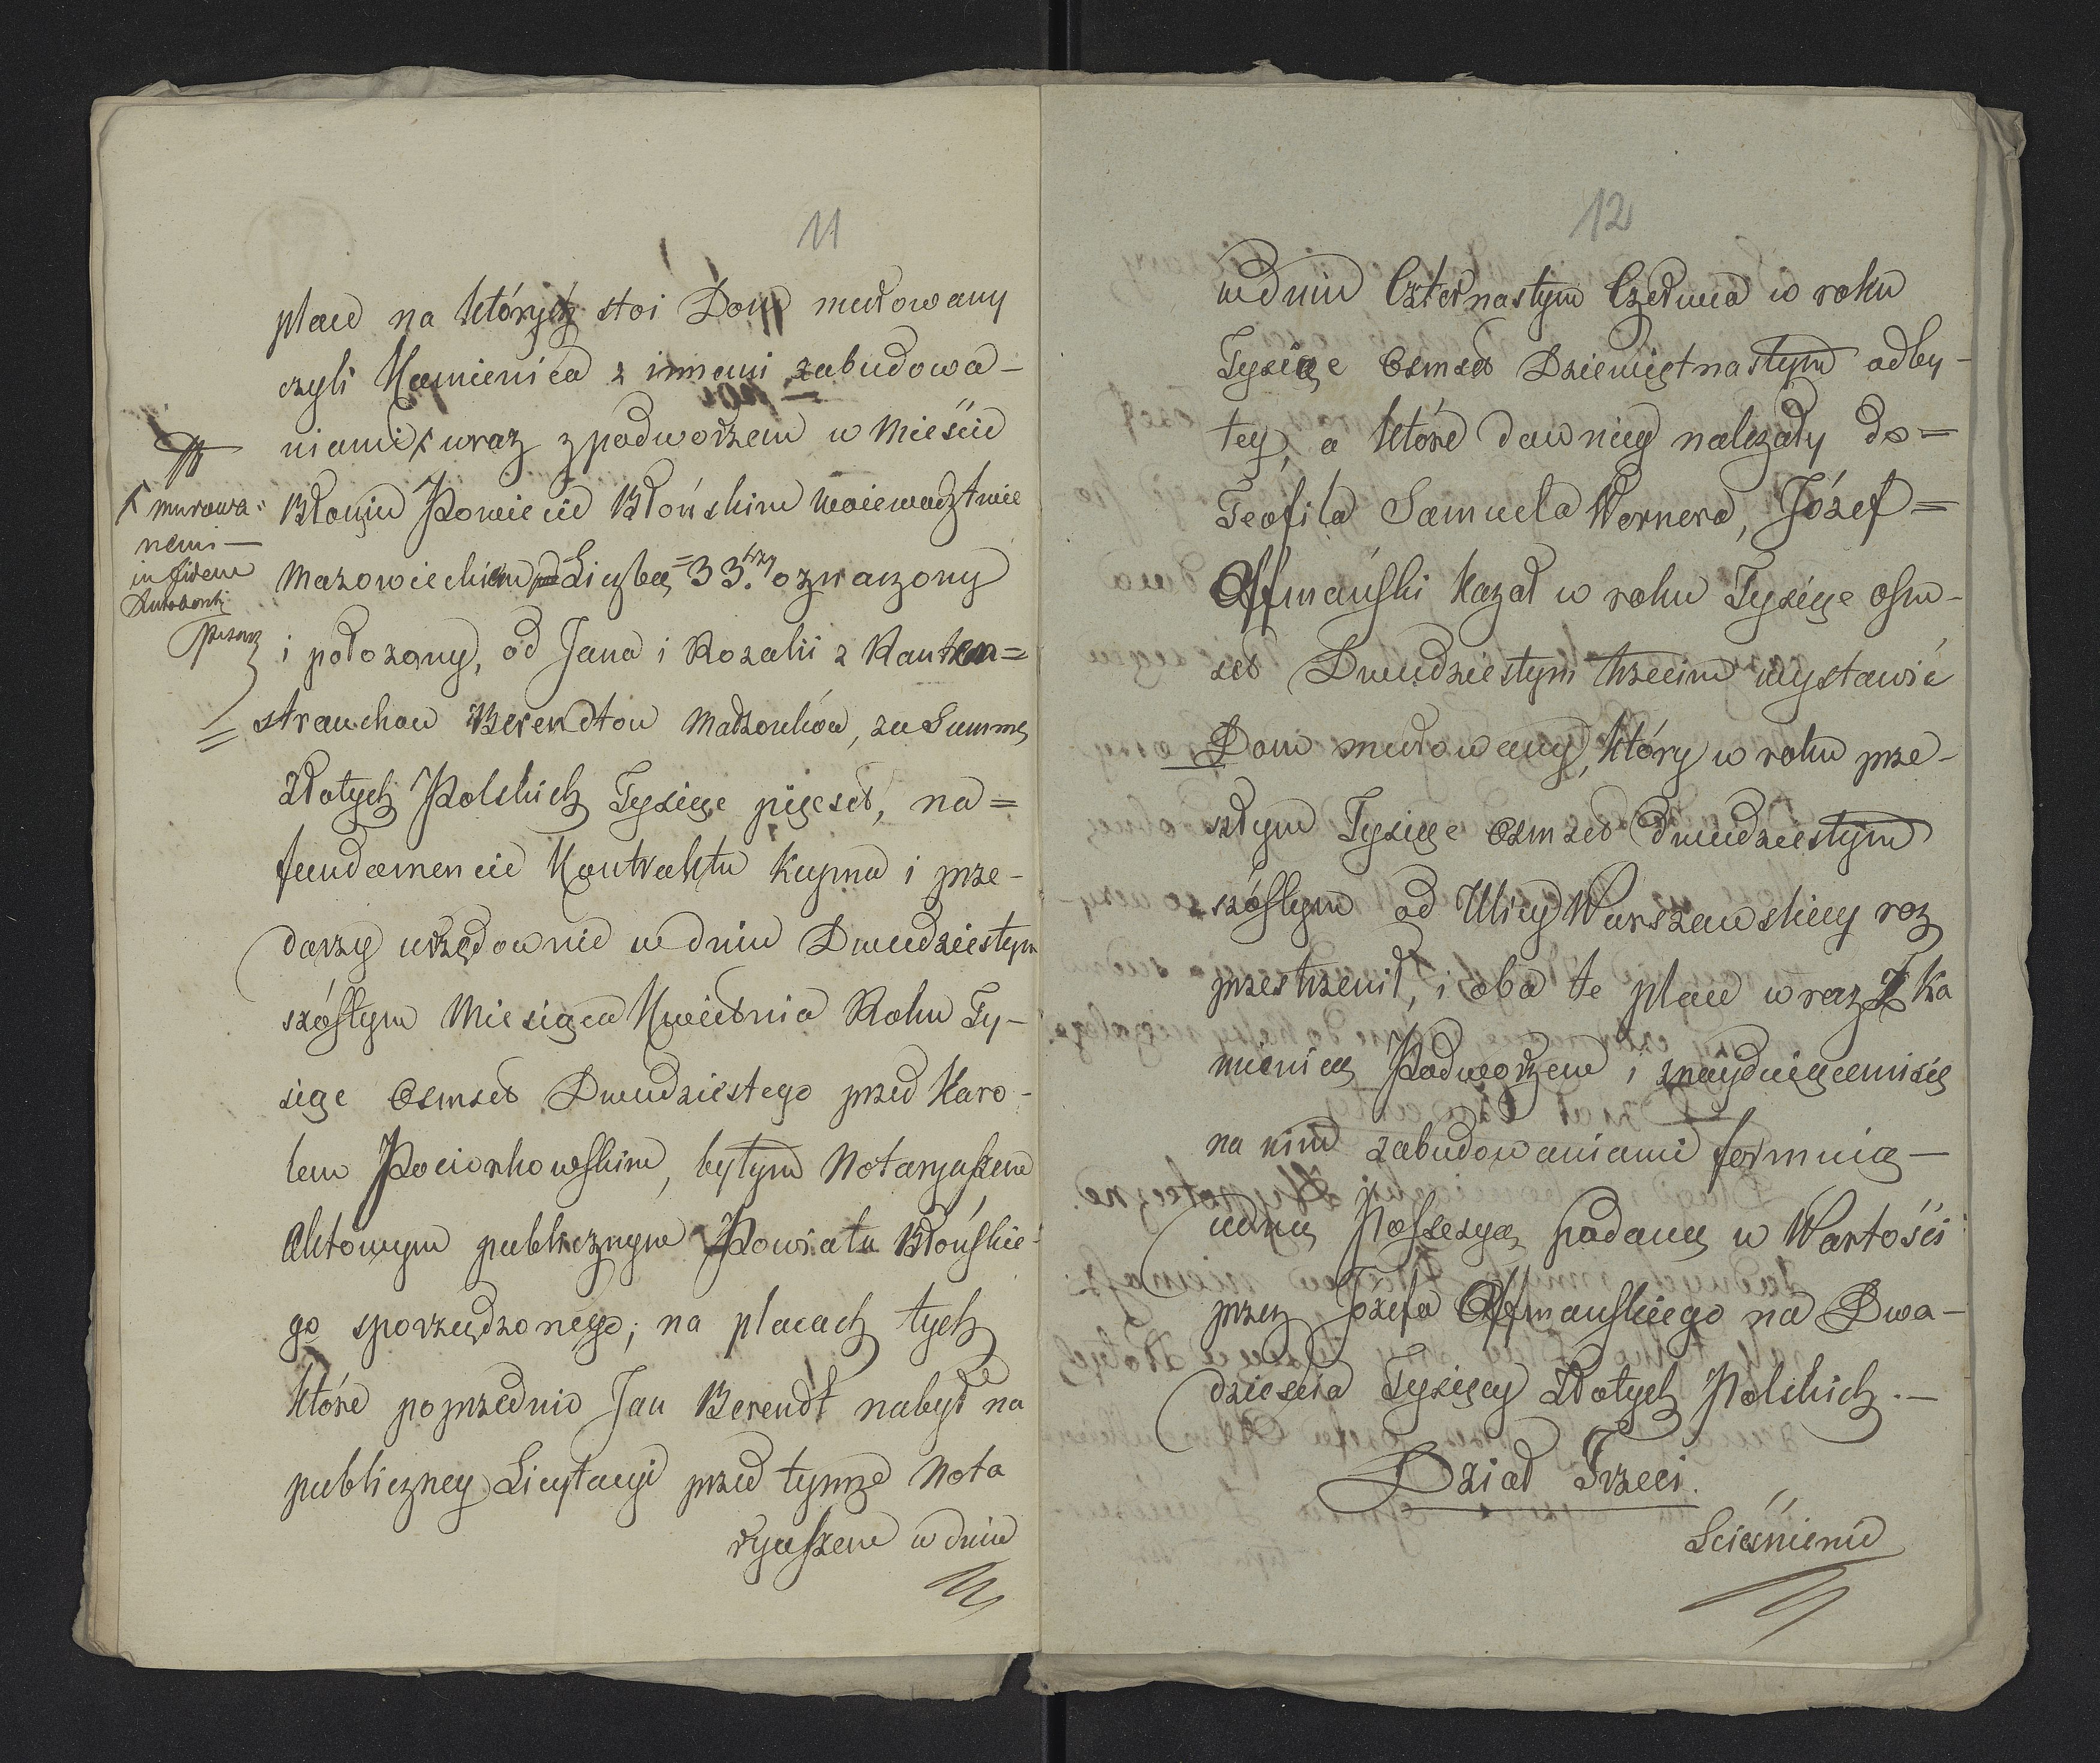 11
place na których stoi Dom murowany
czyli Kamienica z innemi zabudowa-
niami x wraz z podworzem w Mieście
x murowa:
nemi —
in fidem
pisarz
Błoniu Powiecie Błońskim Woiewództwie
Mazowieckiem pod Liczbą = 33. trzy oznaczony
i położony, od Jana i Rozalii z Rauten=
= strauchow Berendtow Małżonków, za Summę
Złotych Polskich Tysiąc pięcset, na=
fundamencie Kontraktu Kupna i prze-
darzy urzędownie w dniu Dwudziestym
szóstym Miesiąca Kwietnia Roku Ty-
siąc Osmset Dwudziestego przed Karo-
lem Pociorkowskim, byłym Notaryuszem
Aktowym publicznym Powiatu Błońskie-
go sporządzonego; na placach tych
które poprzednio Jan Berendt nabył na
publiczney Licytacyi przed tymże Nota
ryuszem w dniu
12
w dniu Czternastym Czerwca w roku
Tysiąc Osmset Dziewiętnastym odby-
tey, a które dawniey należały do=
Teofila Samuela Wernera, Józef=
Offmański kazał w roku Tysiąc osm-
set Dwudziestym trzecim wystawić
Dom murowany, który w roku prze-
szłym Tysiąc Osmset dwudziestym
szóstym od Ulicy Warszawskiey roz
przestrzenił, i oba te place wraz z Ka
mienicą Podworzem i znayduiącemi się
na nim zabudowaniami formuią —
iedną Possesyą podaną w Wartości
przez Józefa Offmanskiego na Dwa-
dzieścia Tysięcy Złotych Polskich. —
Dział Trzeci.
Ścieśnienie